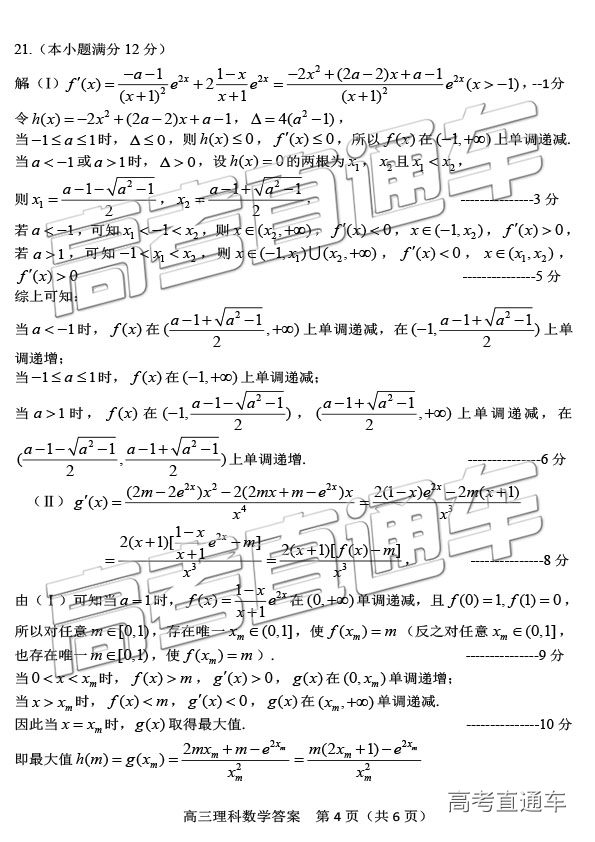 21.（本小题满分 12 分）
解（Ⅰ）$f'(x)=\frac{-a-1}{(x+1)^2}e^{2x}+2\frac{1-x}{x+1}e^{2x}=\frac{-2x^2+(2a-2)x+a-1}{(x+1)^2}e^{2x}(x>-1)$，--1分
令$h(x)=-2x^2+(2a-2)x+a-1$，$\Delta=4(a^2-1)$，
当$-1\le a\le 1$时，$\Delta\le 0$，则$h(x)\le 0$，$f'(x)\le 0$，所以$f(x)$在$(-1,+\infty)$上单调递减.
当$a<-1$或$a>1$时，$\Delta>0$，设$h(x)=0$的两根为$x_1$，$x_2$且$x_1<x_2$，
则$x_1=\frac{a-1-\sqrt{a^2-1}}{2}$，$x_2=\frac{a-1+\sqrt{a^2-1}}{2}$， ---------------3 分
若$a<-1$，可知$x_1<-1<x_2$，则$x\in(x_2,+\infty)$，$f'(x)<0$，$x\in(-1,x_2)$，$f'(x)>0$，
若$a>1$，可知$-1<x_1<x_2$，则$x\in(-1,x_1)\cup(x_2,+\infty)$，$f'(x)<0$，$x\in(x_1,x_2)$，
$f'(x)>0$ ---------------5 分
综上可知：
当$a<-1$时，$f(x)$在$(\frac{a-1+\sqrt{a^2-1}}{2},+\infty)$上单调递减，在$(-1,\frac{a-1+\sqrt{a^2-1}}{2})$上单
调递增；
当$-1\le a\le 1$时，$f(x)$在$(-1,+\infty)$上单调递减；
当$a>1$时，$f(x)$在$(-1,\frac{a-1-\sqrt{a^2-1}}{2})$，$(\frac{a-1+\sqrt{a^2-1}}{2},+\infty)$上单调递减，在
$(\frac{a-1-\sqrt{a^2-1}}{2},\frac{a-1+\sqrt{a^2-1}}{2})$上单调递增. ---------------6 分
（Ⅱ）$g'(x)=\frac{(2m-2e^{2x})x^2-2(2mx+m-e^{2x})x}{x^4}=\frac{2(1-x)e^{2x}-2m(x+1)}{x^3}$
$=\frac{2(x+1)[\frac{1-x}{x+1}e^{2x}-m]}{x^3}=\frac{2(x+1)[f(x)-m]}{x^3}$， ---------------8 分
由（Ⅰ）可知当$a=1$时，$f(x)=\frac{1-x}{x+1}e^{2x}$在$(0,+\infty)$单调递减，且$f(0)=1,f(1)=0$，
所以对任意$m\in[0,1)$，存在唯一$x_m\in(0,1]$，使$f(x_m)=m$（反之对任意$x_m\in(0,1]$，
也存在唯一$m\in[0,1)$，使$f(x_m)=m$）. ---------------9 分
当$0<x<x_m$时，$f(x)>m$，$g'(x)>0$，$g(x)$在$(0,x_m)$单调递增；
当$x>x_m$时，$f(x)<m$，$g'(x)<0$，$g(x)$在$(x_m,+\infty)$单调递减.
因此当$x=x_m$时，$g(x)$取得最大值. ---------------10 分
即最大值$h(m)=g(x_m)=\frac{2mx_m+m-e^{2x_m}}{x_m^2}=\frac{m(2x_m+1)-e^{2x_m}}{x_m^2}$
高三理科数学答案 第 4 页（共 6 页）
高考直通车
高考直通车
高考直通车